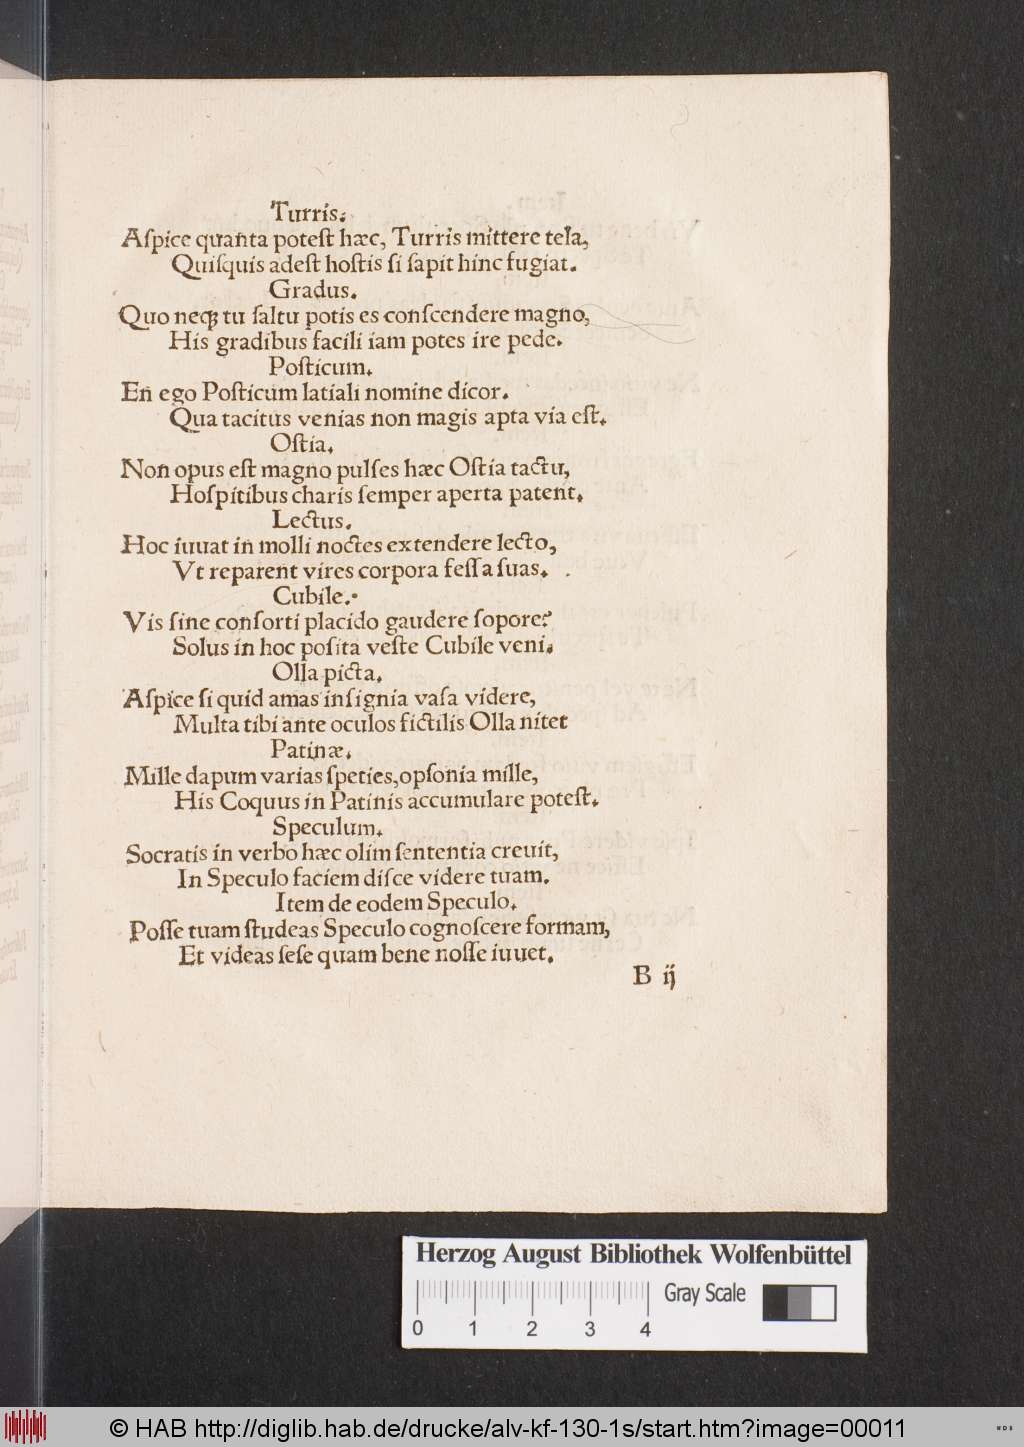 Turris.
Aſpice quanta poteſt hæc, Turris mittere tela,
Quiſquis adeſt hoſtis ſi ſapit hinc fugiat.
Gradus.
Quo neqꝫ tu ſaltu potis es conſcendere magno,
His gradibus facili iam potes ire pede.
Poſticum.
En ego Poſticum latiali nomine dicor.
Qua tacitus venias non magis apta via eſt.
Oſtia.
Non opus eſt magno pulſes hæc Oſtia tactu,
Hoſpitibus charis ſemper aperta patent.
Lectus.
Hoc iuuat in molli noctes extendere lecto,
Vt reparent vires corpora feſſa ſuas.
Cubile.
Vis ſine conſorti placido gaudere ſopore?
Solus in hoc poſita veſte Cubile veni.
Olla picta.
Aſpice ſi quid amas inſignia vaſa videre,
Multa tibi ante oculos fictilis Olla nitet
Patinæ.
Mille dapum varias ſpeties, opſonia mille,
His Coquus in Patinis accumulare poteſt.
Speculum.
Socratis in verbo hæc olim ſententia creuit,
In Speculo faciem diſce videre tuam.
Item de eodem Speculo.
Poſſe tuam ſtudeas Speculo cognoſcere formam,
Et videas ſeſe quam bene noſſe iuuet.
B ij
Herzog August Bibliothek Wolfenbüttel
Gray Scale
0 1 2 3 4
© HAB http://diglib.hab.de/drucke/alv-kf-130-1s/start.htm?image=00011